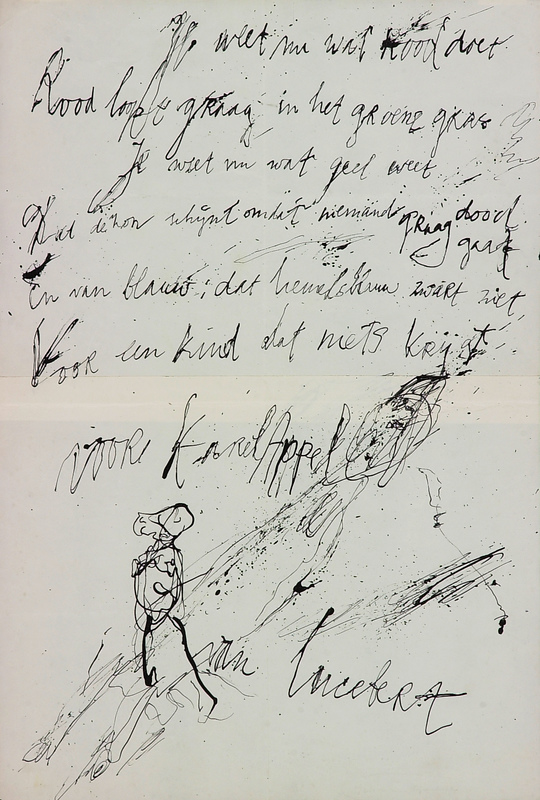 Je weet nu wat rood doet
Rood loopt graag in het groene gras
Je weet nu wat geel weet
Dat de zon schijnt omdat niemand graag dood
gaat
En van blauw; dat hemelsblauw zwart ziet
Voor een kind dat niets krijgt
voor Karel Appel
van lucebert